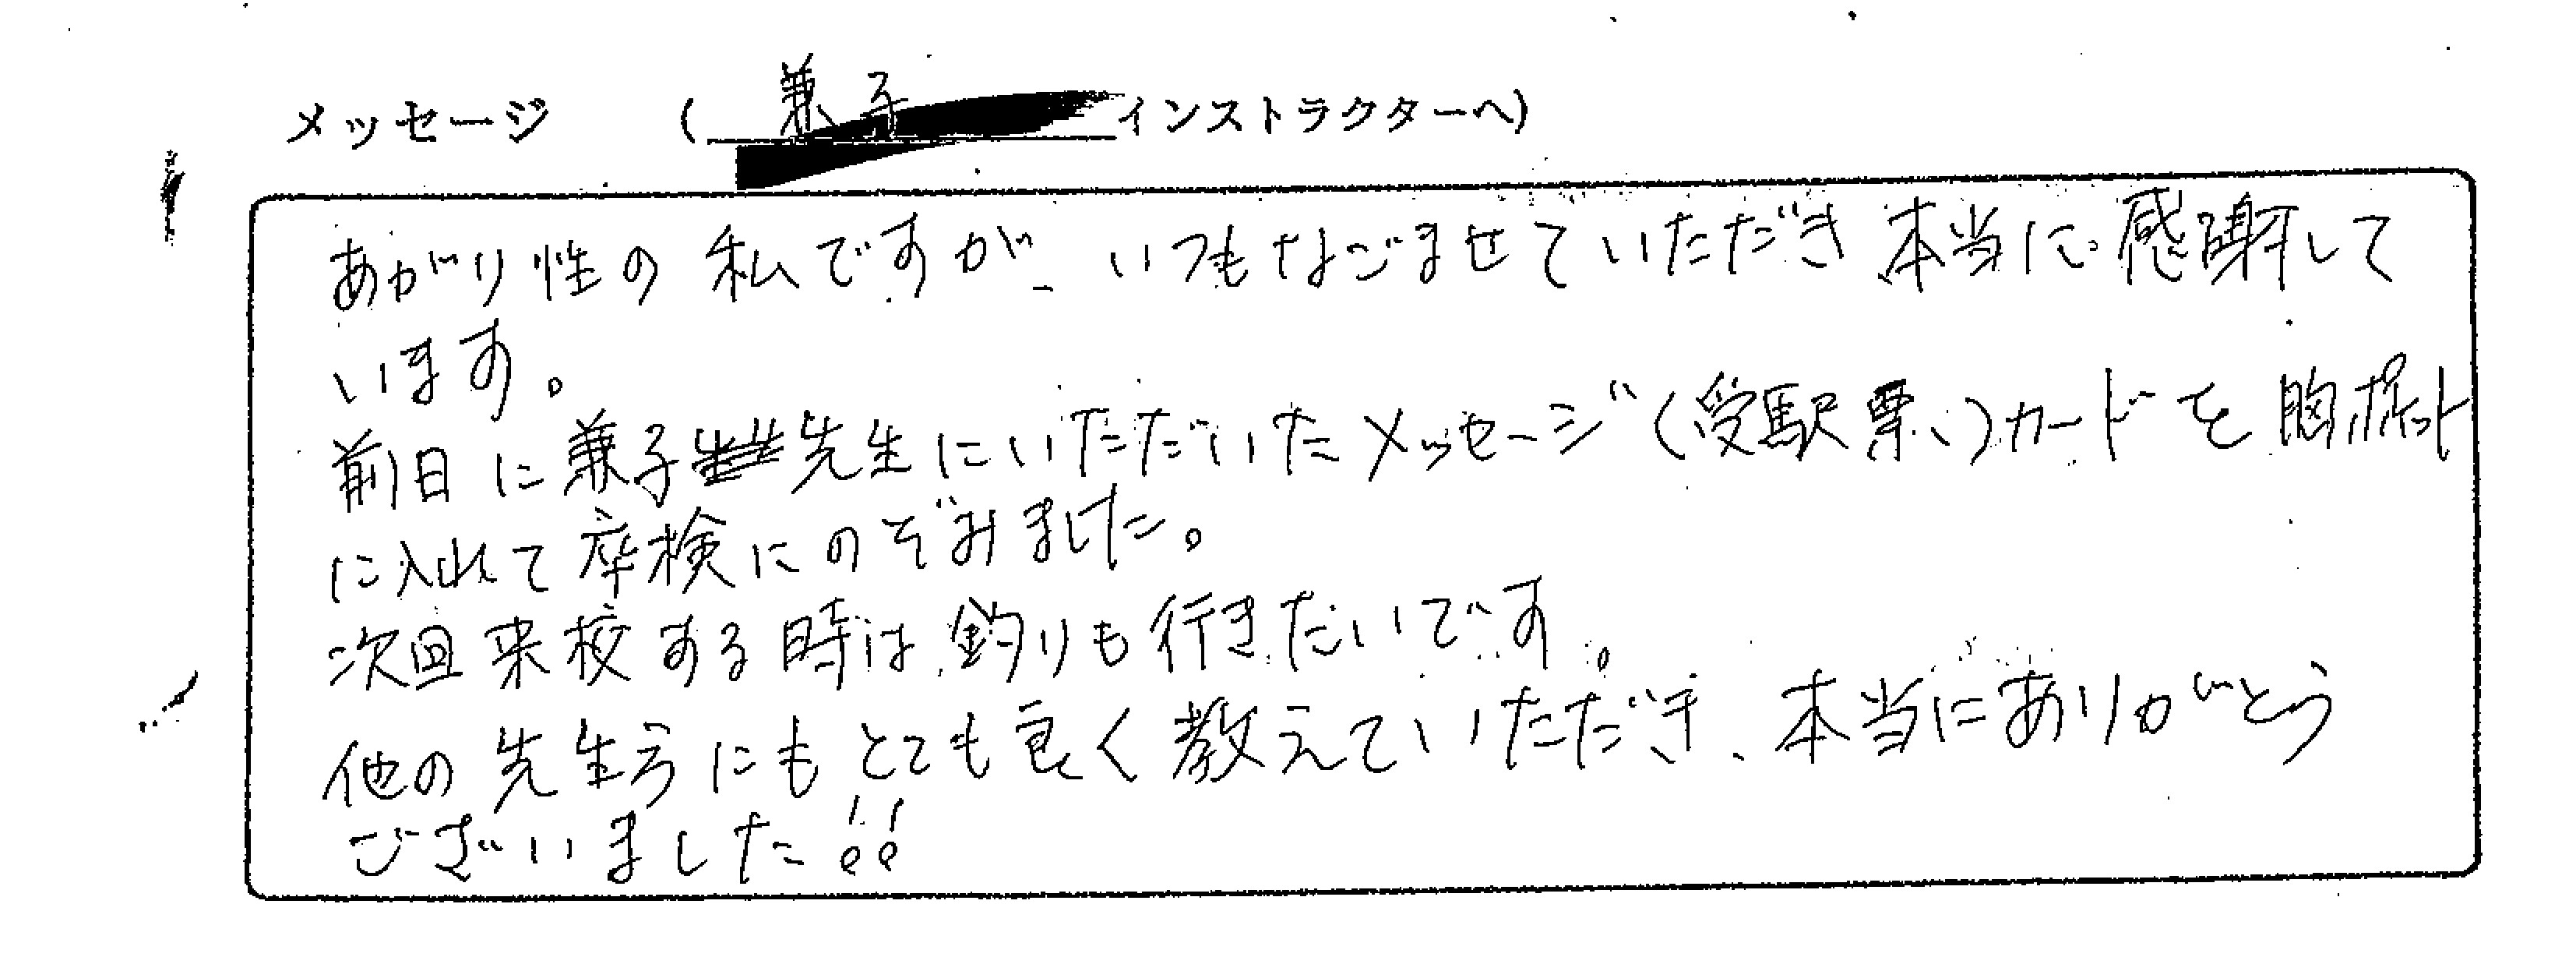 メッセージ （兼子インストラクターへ）
あがり性の私ですが、いつもなごませていただき本当に感謝して
います。
前日に兼子先生にいただいたメッセージ（受験票、）カードを胸ポケット
に入れて卒検にのぞみました。
次回来校する時は釣りも行きたいです。
他の先生方にもとても良く教えていただき、本当にありがとう
ございました!!